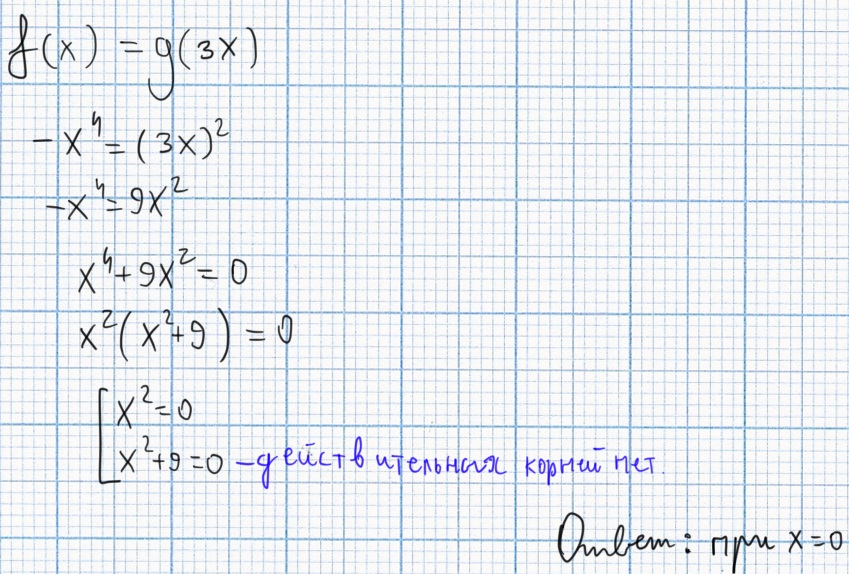 f(x) = g(3x)
-x⁴ = (3x)²
-x⁴ = 9x²
x⁴ + 9x² = 0
x²(x² + 9) = 0
[ x² = 0
x² + 9 = 0 – действительных корней нет.
Ответ: при x = 0